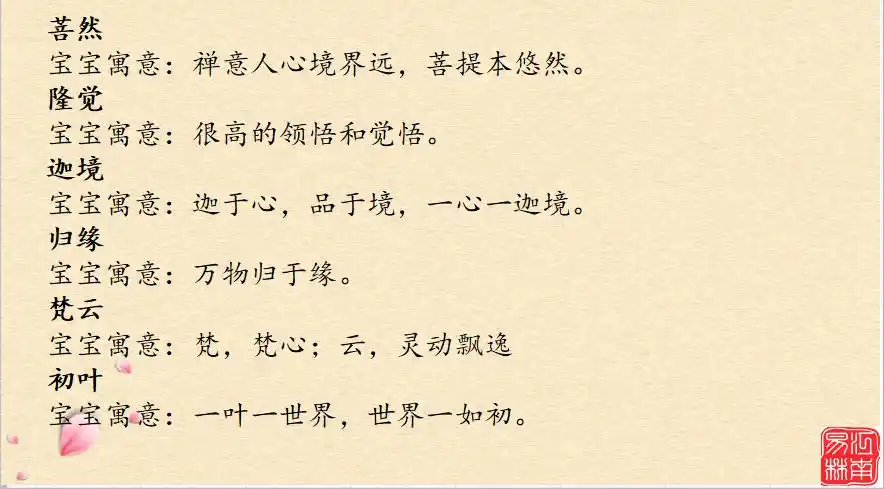 菩然
宝宝寓意：禅意人心境界远，菩提本悠然。
隆觉
宝宝寓意：很高的领悟和觉悟。
迦境
宝宝寓意：迦于心，品于境，一心一迦境。
归缘
宝宝寓意：万物归于缘。
梵云
宝宝寓意：梵，梵心；云，灵动飘逸
初叶
宝宝寓意：一叶一世界，世界一如初。
江南
易林